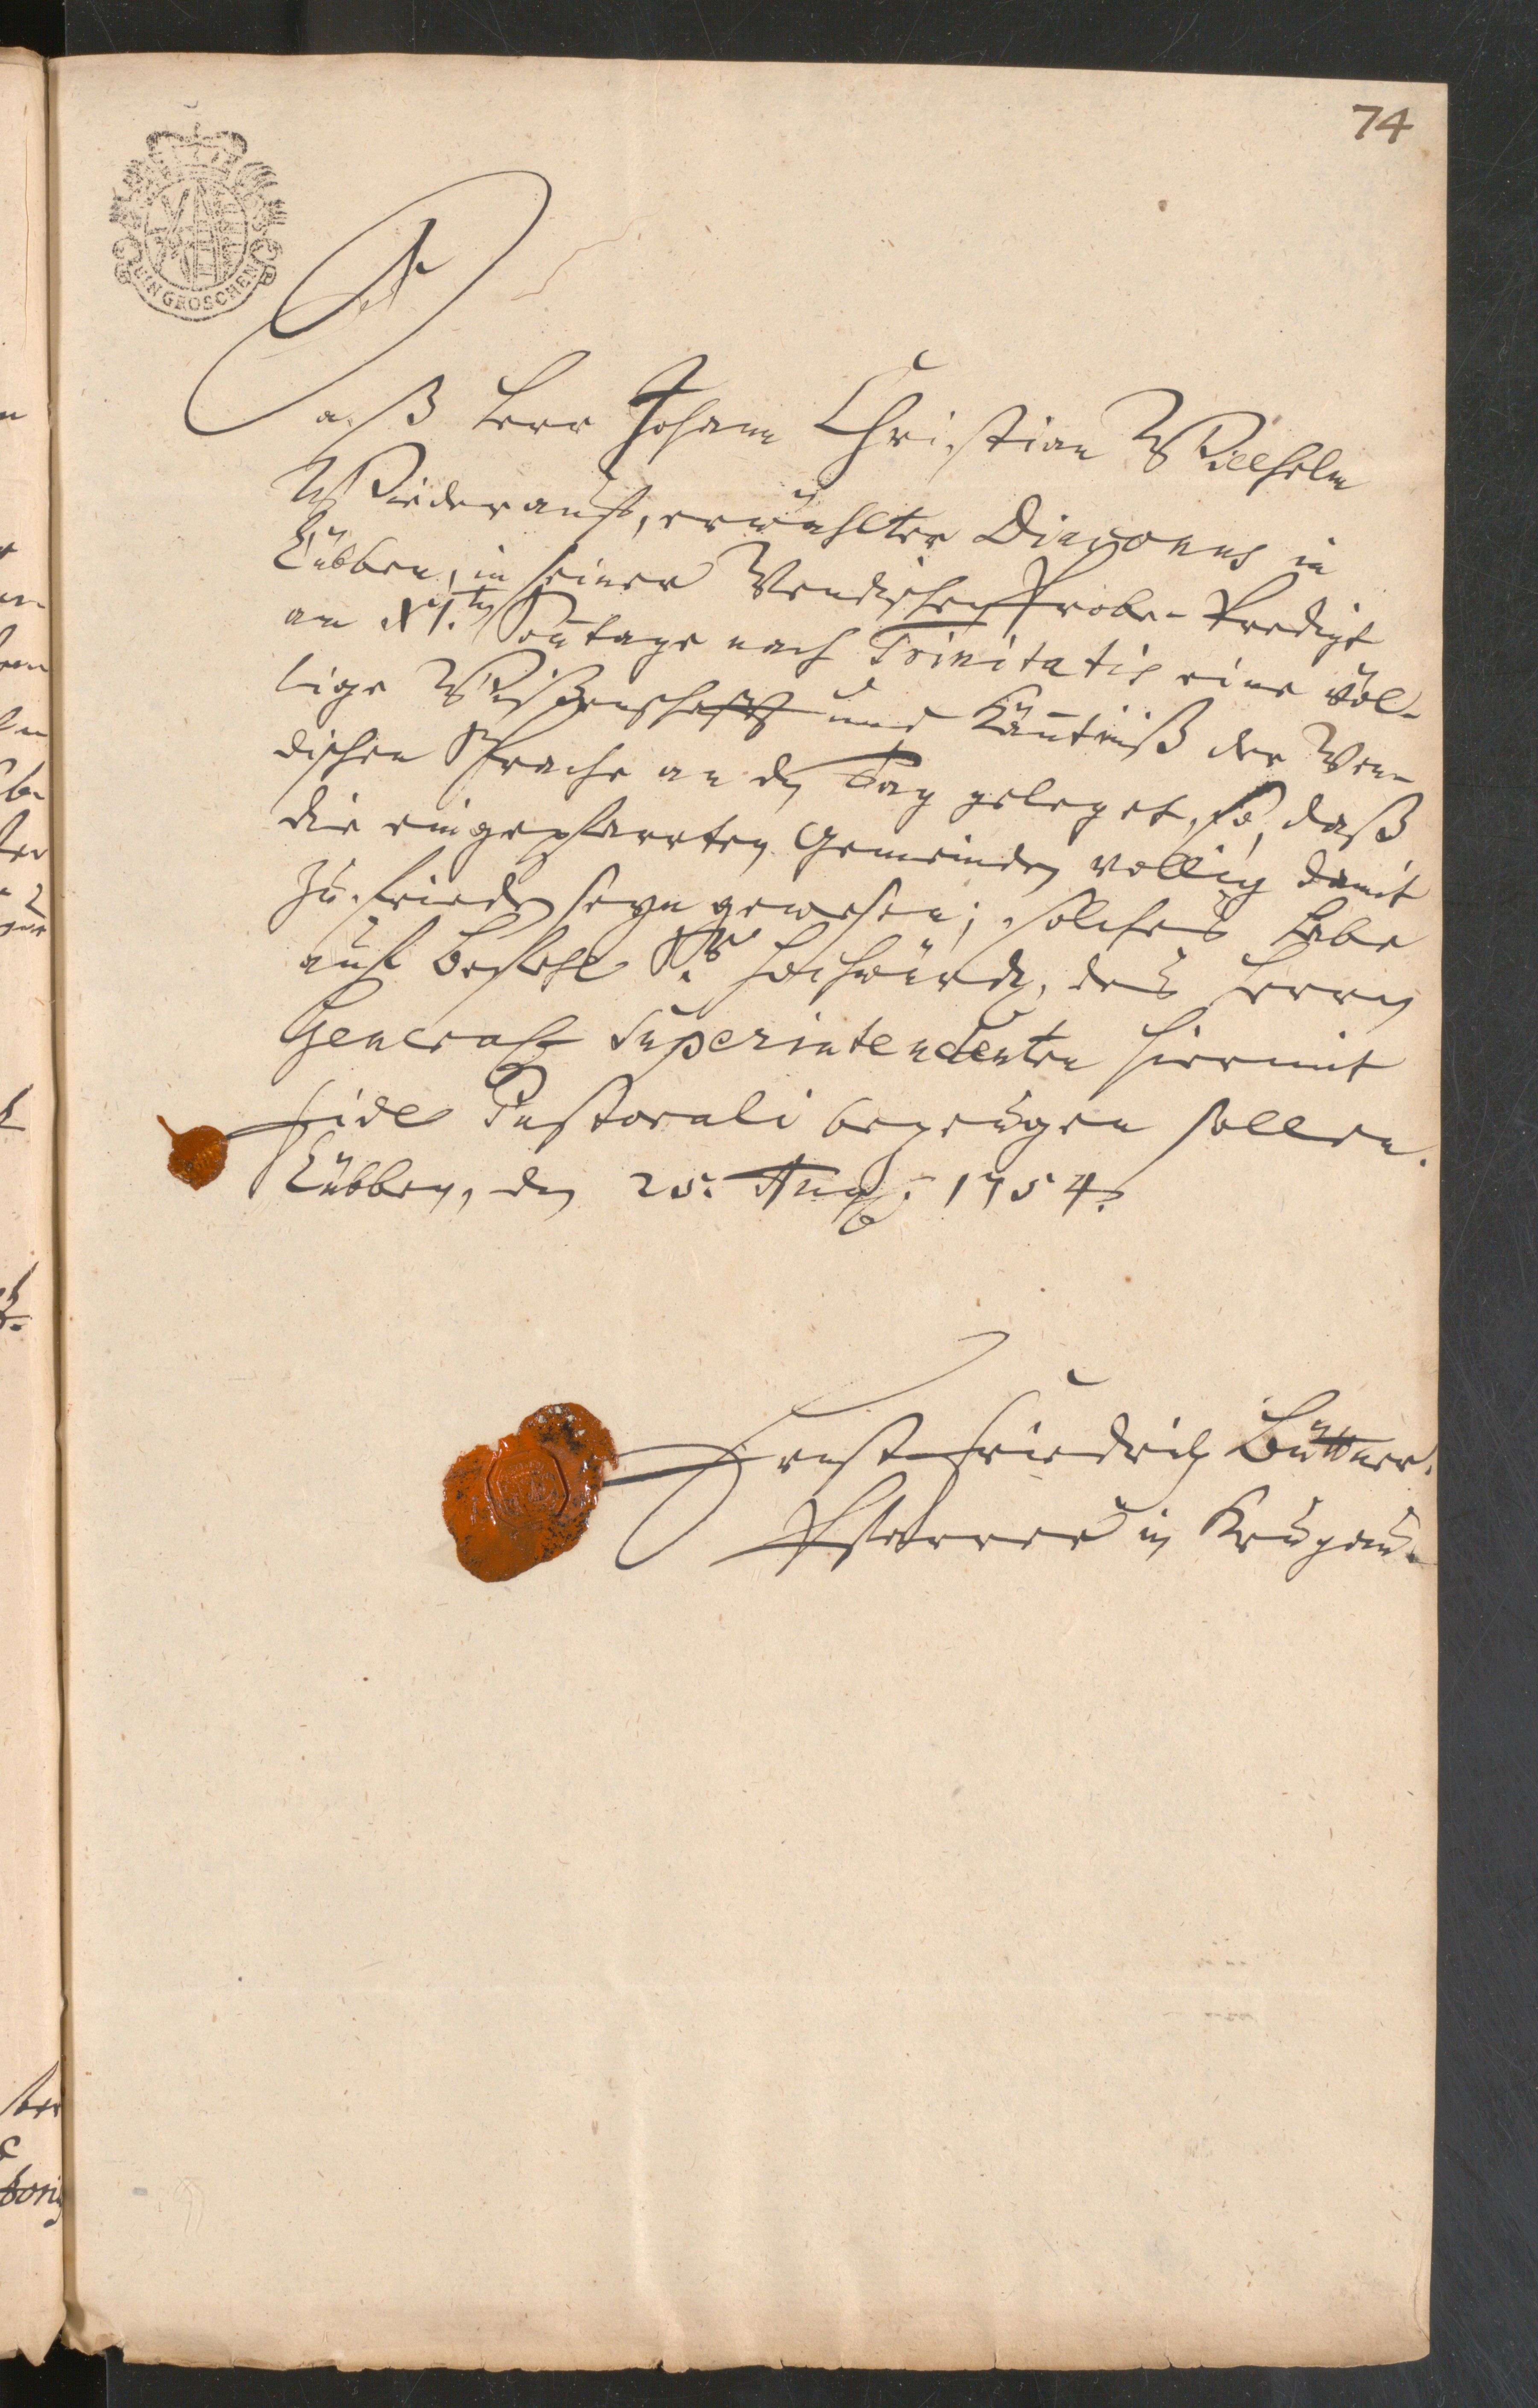 74
EIN GROSCHEN
Daß Herr Johann Christian Wilhelm
Wiederanst, erwählter Diaconus in
Lübben, in seiner Wendischen Probe-Predigt
am XI.ten Sonntage nach Trinitatis eine völ-
lige Wißenschafft und Känntniß der Wen-
dischen Sprache an den Tag geleget, so, daß
die eingepfarrten Gemeinden vollig damit
zu frieden seyn gewesen; solches habe
auf Befehl Sr. Hochwürden, des Herrn
General Superintendenten hiermit
fide Pastorali bezeugen sollen.
Lübben, den 25. Aug: 1754.
Ernst Friedrich Büttner.
Pfarrer in Krugau.